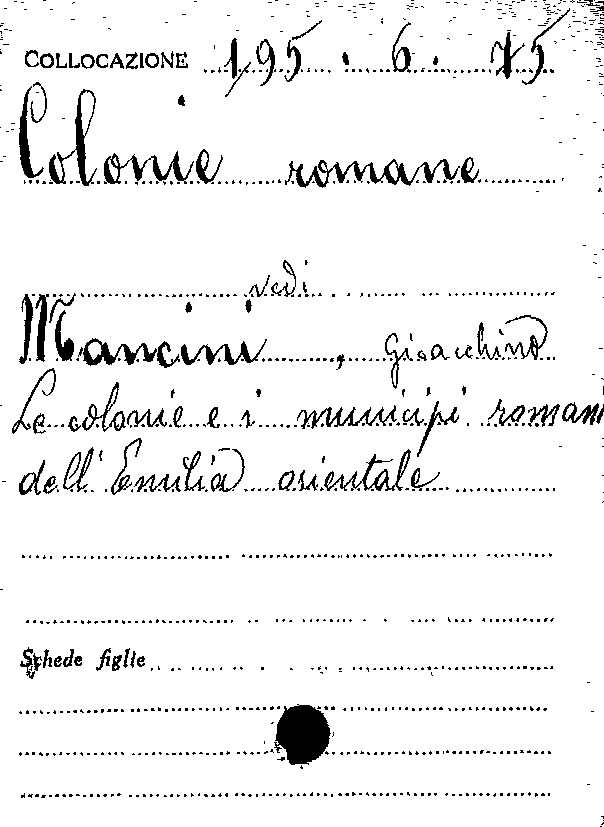 COLLOCAZIONE 195. 6. 75
Colonie romane
vedi
Mancini, Gioacchino
Le colonie e i municipi romani
dell'Emilia orientale
Schede figlie